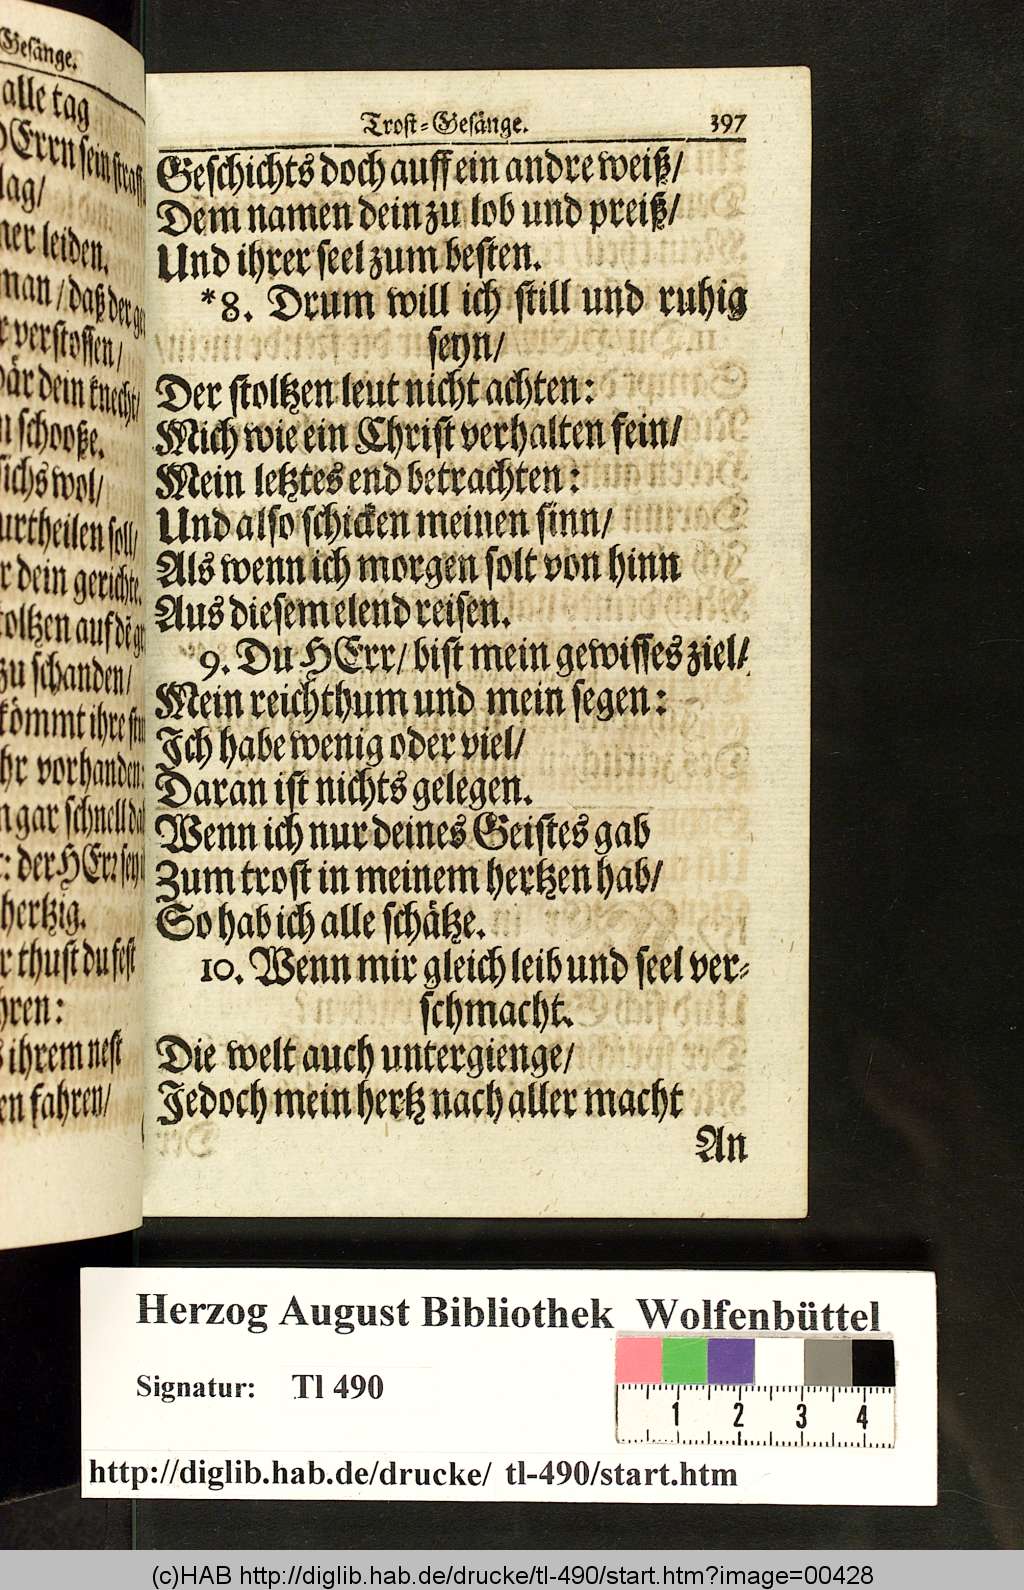 Gesänge.
alle tag
HErrn sein straff
lag/
ner leiden.
man/ daß der
verstossen/
wär dein knecht/
schooße.
sichs wol/
urtheilen soll/
r dein gerichte.
toltzen auf dē
zu schanden/
kömmt ihre
hr vorhanden:
n gar schnell
: der HErr
hertzig.
r thust du fest
hren:
ihrem nest
en fahren/
Trost-Gesänge. 397
Geschichts doch auff ein andre weiß/
Dem namen dein zu lob und preiß/
Und ihrer seel zum besten.
*8. Drum will ich still und ruhig
seyn/
Der stoltzen leut nicht achten:
Mich wie ein Christ verhalten fein/
Mein letztes end betrachten:
Und also schicken meinen sinn/
Als wenn ich morgen solt von hinn
Aus diesem elend reisen.
9. Du HErr/ bist mein gewisses ziel/
Mein reichthum und mein segen:
Ich habe wenig oder viel/
Daran ist nichts gelegen.
Wenn ich nur deines Geistes gab
Zum trost in meinem hertzen hab/
So hab ich alle schätze.
10. Wenn mir gleich leib und seel ver-
schmacht.
Die welt auch untergienge/
Jedoch mein hertz nach aller macht
An
Herzog August Bibliothek Wolfenbüttel
Signatur: Tl 490
1 2 3 4
http://diglib.hab.de/drucke/ tl-490/start.htm
(c)HAB http://diglib.hab.de/drucke/tl-490/start.htm?image=00428